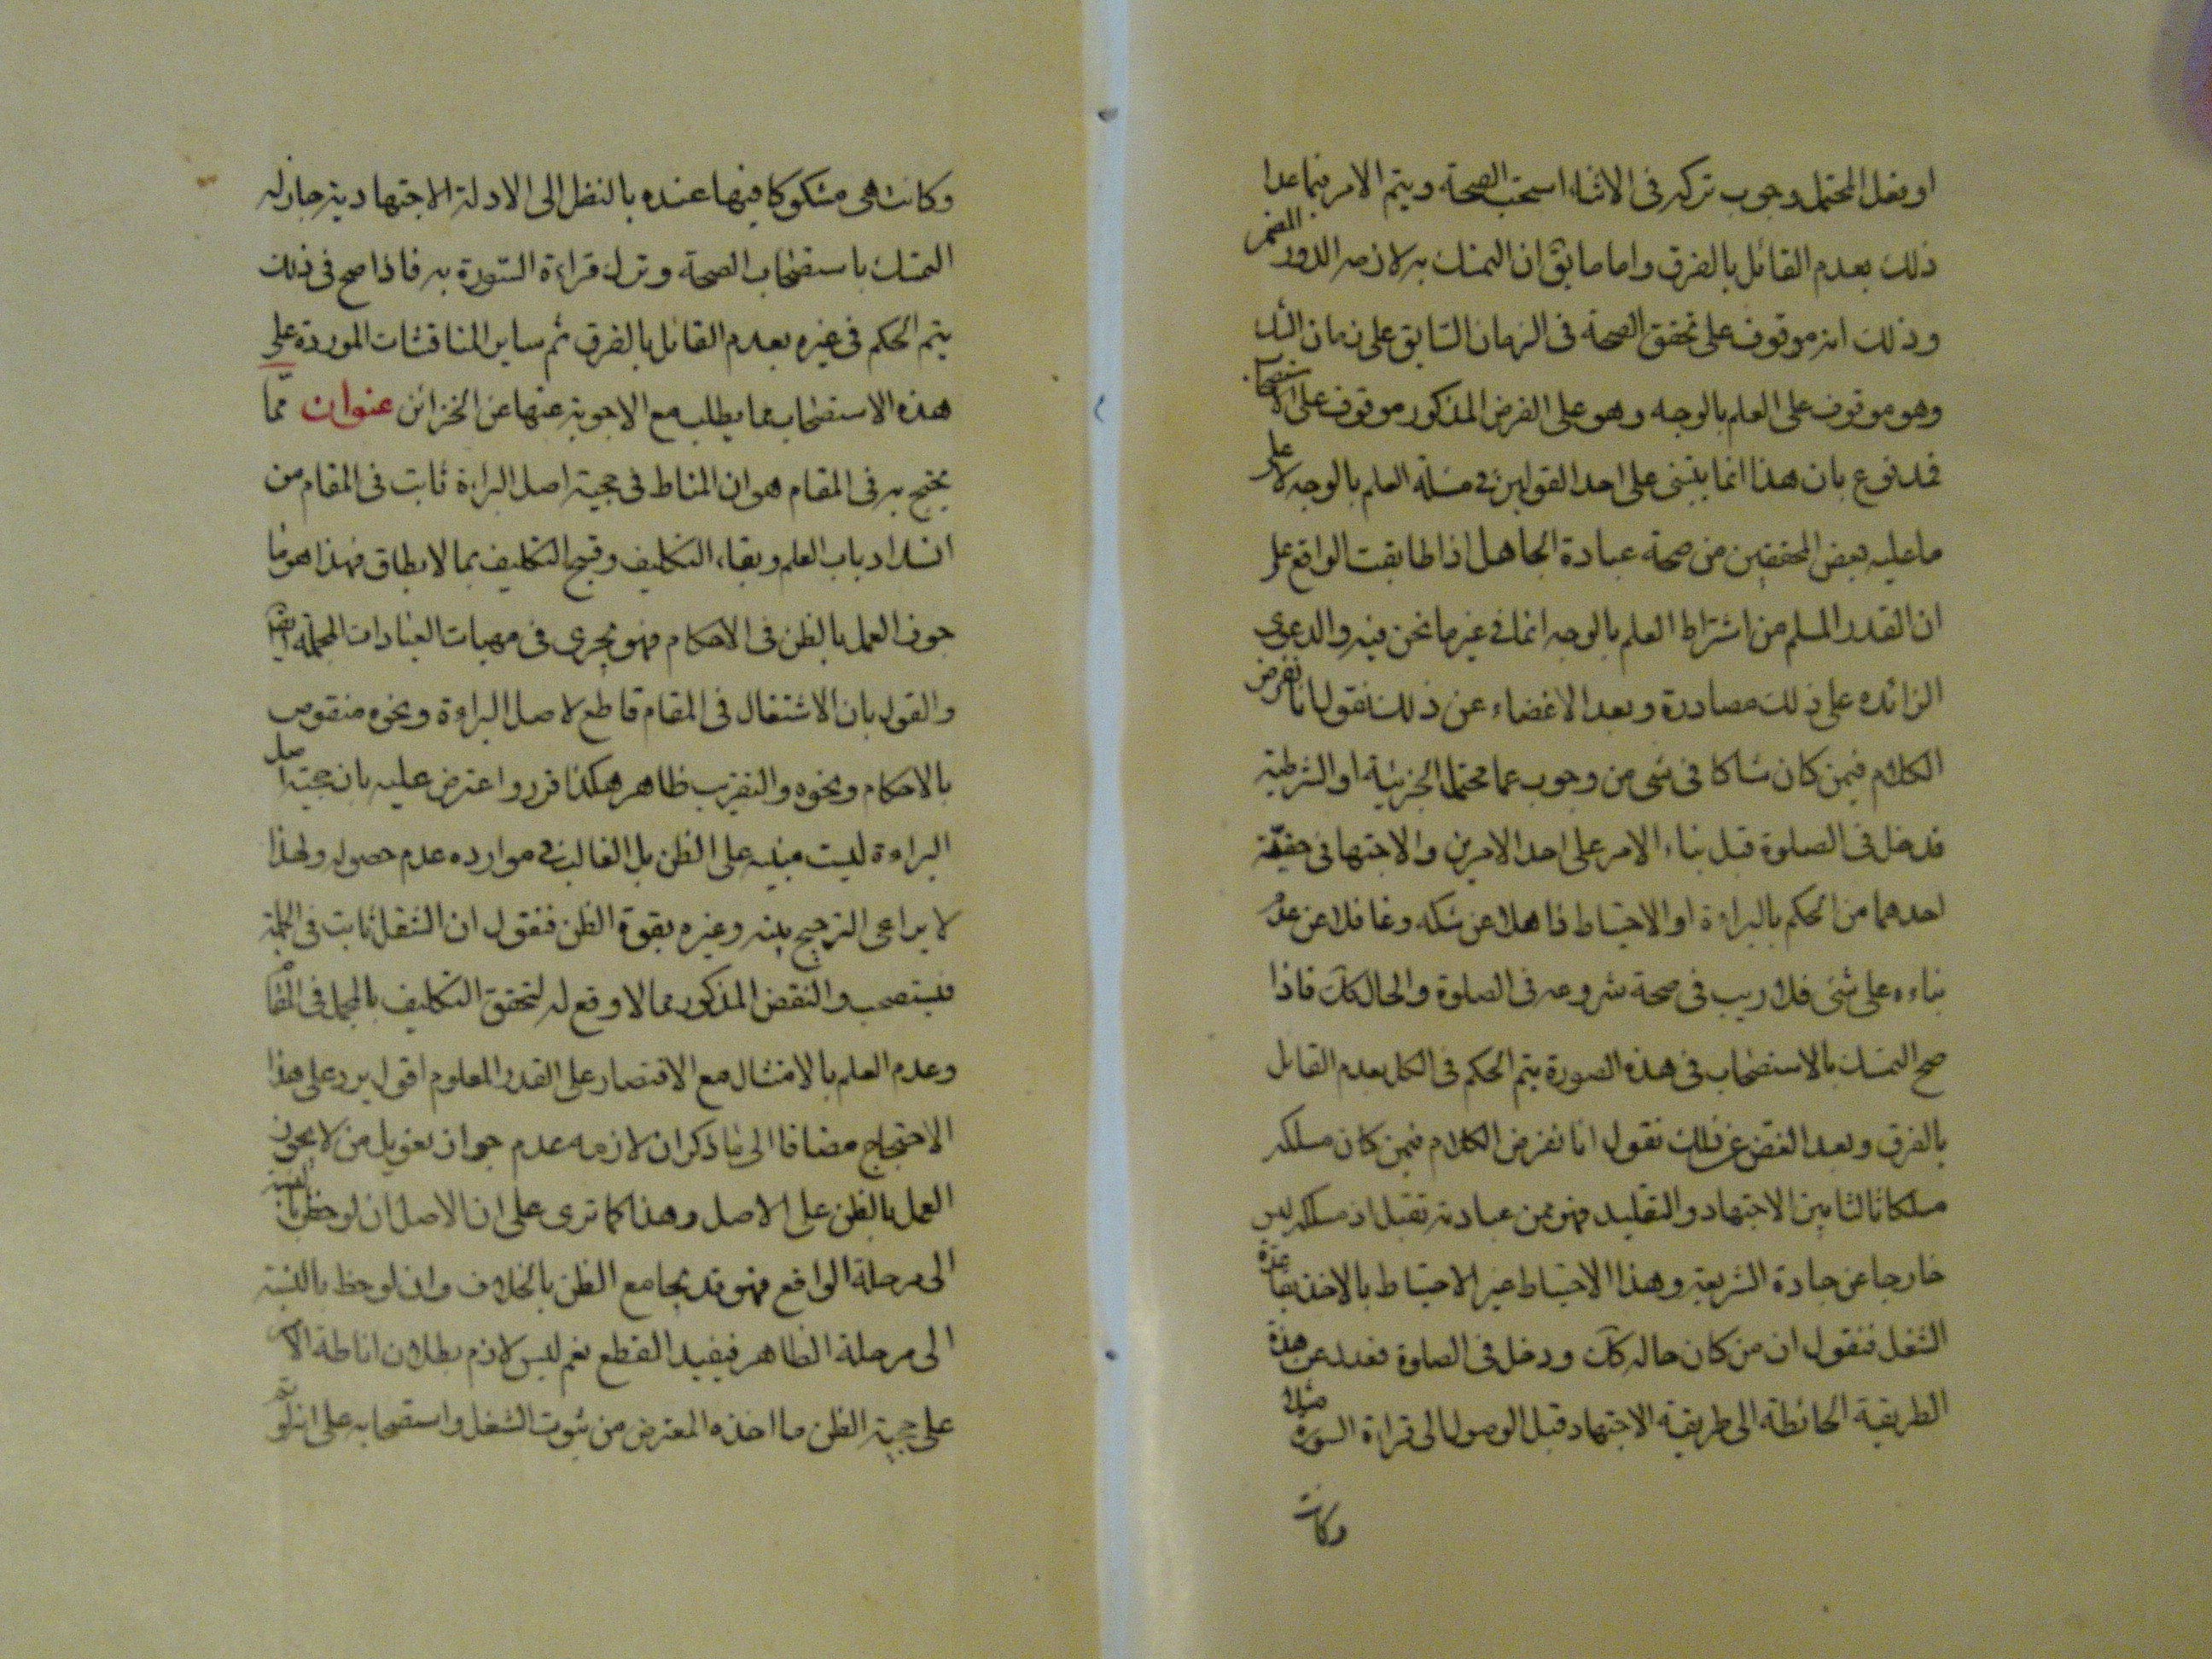 او بفعل المحتمل وجوب تركه فى الاثناء استصحب الصحة ويتم الامر فيما عدا
ذلك بعدم القائل بالفرق واما ما يق ان التمسك به لازمه الدور المضمر
وذلك انه موقوف على تحقق الصحة فى الزمان السابق على زمان الشك
وهو موقوف على العلم بالوجه وهو على الفرض المذكور موقوف على الاستصحاب
فمدفوع بان هذا انما يبتنى على احد القولين فى مسئلة العلم بالوجه لا على
ما عليه بعض المحققين من صحة عبادة الجاهل اذا طابقت الواقع على
ان القدر المسلم من اشتراط العلم بالوجه انما فى غير ما نحن فيه والدعوى
الزائده على ذلك مصادرة وبعد الاغضاء عن ذلك نقول انا نفرض
الكلام فيمن كان شاكا فى شى من وجوب عما محتمل الجزئية او الشرطية
قد دخل فى الصلوة قبل بناء الامر على احد الامرين والاجتها فى حقية
احدهما من الحكم بالبراءة او الاحتياط ذاهلا عن شكه وغافلا عن عدم
بناءه على شئ فلا ريب فى صحة شروعه فى الصلوة والحال كك فاذا
صح التمسك بالاستصحاب فى هذه الصورة يتم الحكم فى الكل بعدم القابل
بالفرق وبعد الغض عن ذلك نقول انا نفرض الكلام فيمن كان مسلكه
مسلكا ثالثا بين الاجتهاد والتقليد فهو ممن عبادته تقبل اذ مسلكه ليس
خارجا عن جادة الشريعة وهذا الاحتياط غير الاحتياط بالاخذ بقاعدة
الشغل فنقول ان من كان حاله كك ودخل فى الصلوة فعدل عن هذه
الطريقية الحائطة الى طريقية الاجتهاد قبل الوصول الى قراءة السورة مثلا
وكانت
وكانت هى مشكوكا فيها عنده بالنظر الى الادلة الاجتهادية جاز له
التمسك باستصحاب الصحة وترك قراءة السورة به فاذا صح فى ذلك
يتم الحكم فى غيره بعدم القائل بالفرق ثم ساير المناقشات الموردة على
هذه الاستصحاب مما يطلب مع الاجوبة عنها عن الخزائن عنوان مما
يحتج به فى المقام هو ان المناط فى حجية اصل البراءة ثابت فى المقام من
انسداد باب العلم وبقاء التكليف وقبح التكليف بما لا يطاق فهذا هو ما
جوز العمل بالظن فى الاحكام فهو يجرى فى مهيات العبادات المجملة ايضا
والقول بان الاشتغال فى المقام قاطع لاصل البراءة ونحوه منقوص
بالاحكام ونحوه والتقريب ظاهر هكذا قرر واعترض عليه بان حجية اصل
البراءة ليست مبنيه على الظن بل الغالب فى موارده عدم حصوله ولهذا
لا يراعى الترجيح بينه وغيره بقوة الظن فنقول ان الشغل ثابت فى الجملة
فيستصحب والنقض المذكور مما لا وقع له لتحقق التكليف بالمجمل فى المقام
وعدم العلم بالامتثال مع الاقتصار على القدر المعلوم اقول يرد على هذا
الاحتجاج مضافا الى ما ذكر ان لازمه عدم جواز تعويل من لا يجوز
العمل بالظن على الاصل وهذا كما ترى على ان الاصل ان لوحظ بالنسبة
الى مرحلة الواقع فهو قد يجامع الظن بالخلاف وان لوحظ بالنسبة
الى مرحلة الظاهر فيفيد القطع نعم ليس لازم بطلان اناطة الامر
على حجية الظن ما اخذه المعترض من ثبوت الشغل واستصحابه على انه لو تم